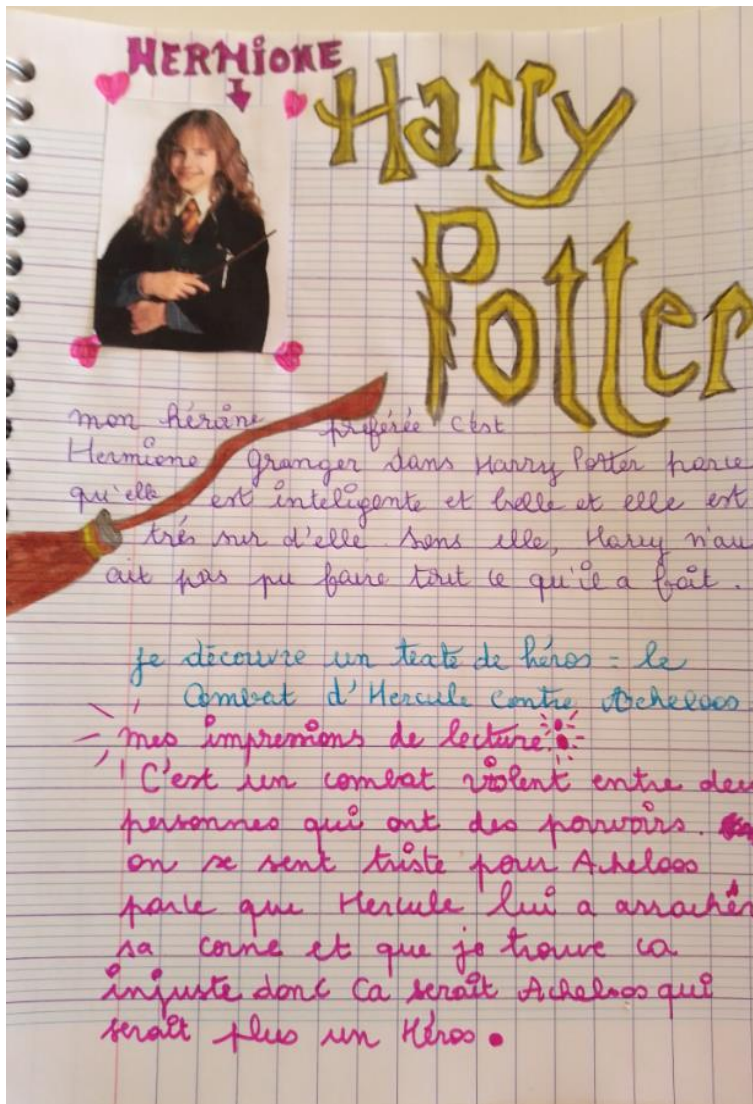 HERMIONE
Harry
Potter
mon héroïne préférée c'est
Hermione Granger dans Harry Potter parce
qu'elle est inteligente et belle et elle est
très sur d'elle. Sans elle, Harry n'au
ait pas pu faire tout ce qu'il a fait.
je découvre un texte de héros : le
Combat d'Hercule contre Acheloos
mes impressions de lecture
C'est un combat violent entre deu
personnes qui ont des pouvoirs.
on se sent triste pour Acheloos
parce que Hercule lui a arrachér
sa corne et que je trouve ca
injuste donc Ca serait Acheloos qui
serait plus un Héros.